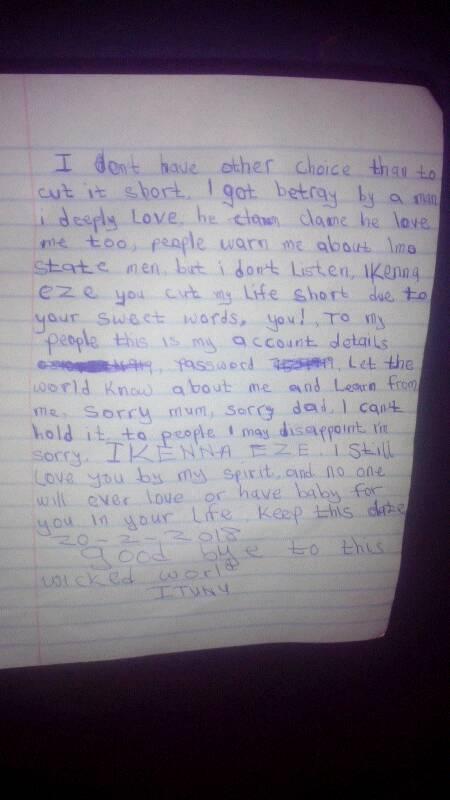 I dont have other choice than to
cut it short. I got betray by a man
i deeply Love. he clame he love
me too, people warn me about Imo
state men, but i dont Listen, IKenna
eze you cut my Life short due to
your sweet words, you!, To my
people this is my account details
, Password . Let the
world Know about me and Learn from
me. Sorry mum, sorry dad, I cant
hold it, to people I may disappoint i'm
sorry. IKENNA EZE. I Still
Love you by my spirit, and no one
will ever love or have baby for
you in your Life. Keep this date
20-2-2018
good bye to this
wicked world